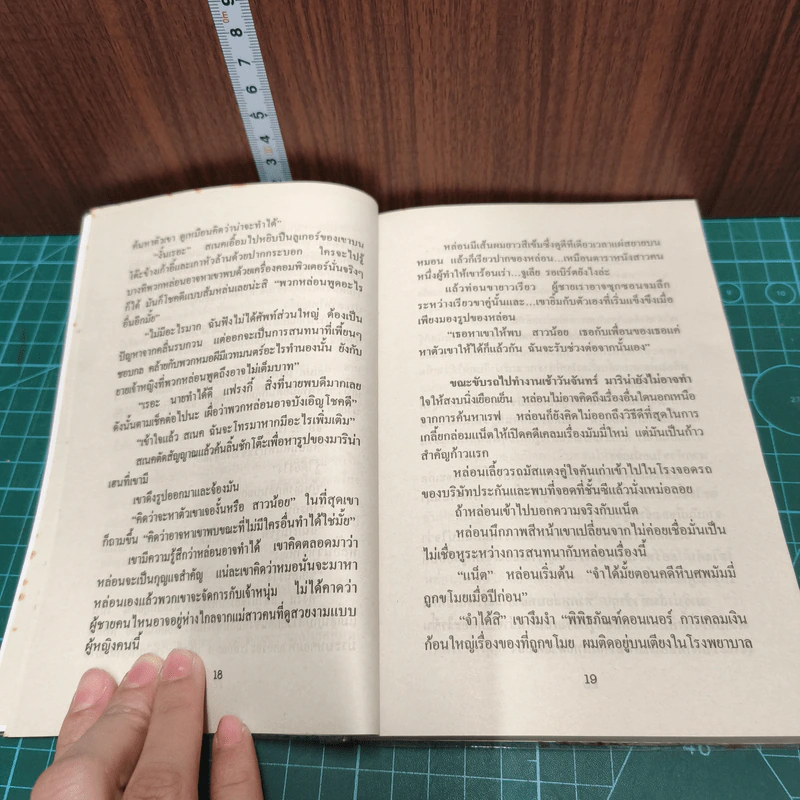 ค้นหาตัวเขา ดูเหมือนคิดว่าน่าจะทำได้"
"งั้นเรอะ" สเนคเอื้อมไปหยิบปืนลูเกอร์ของเขาบน
โต๊ะข้างเก้าอี้และเกาหัวล้านด้วยปากกระบอก ใครจะไปรู้
บางทีพวกหล่อนอาจหาเขาพบด้วยเครื่องคอมพิวเตอร์นั่นจริงๆ
ก็ได้ มันก็โชคดีแบบส้มหล่นเลยน่ะสิ "พวกหล่อนพูดอะไร
อื่นอีกมั้ย"
"ไม่มีอะไรมาก ฉันฟังไม่ได้ศัพท์ส่วนใหญ่ ต้องเป็น
ปัญหาจากคลื่นรบกวน แต่ออกจะเป็นการสนทนาที่เพี้ยนๆ
ชอบกล คล้ายกับพวกหมอผีมีเวทมนตร์อะไรทำนองนั้น ยังกับ
ยายเจ้าหญิงที่พวกหล่อนพูดถึงอาจไม่เต็มบาท"
"เรอะ นายทำได้ดี แฟรงกี้ สิ่งที่นายพบดีมากเลย
ดังนั้นตามเช็คต่อไปนะ เผื่อว่าพวกหล่อนอาจบังเอิญโชคดี"
"เข้าใจแล้ว สเนค ฉันจะโทรมาหากมีอะไรเพิ่มเติม"
สเนคตัดสัญญาณแล้วค้นลิ้นชักโต๊ะเพื่อหารูปของมาริน่า
เฮนที่เขามี
เขาดึงรูปออกมาและจ้องมัน
"คิดว่าจะหาตัวเจอะงั้นหรือ สาวน้อย" ในที่สุดเขา
ก็ถามขึ้น "คิดว่าอาจหาเขาพบขณะที่ไม่มีใครอื่นทำได้ใช่มั้ย"
เขามีความรู้สึกว่าหล่อนอาจทำได้ เขาคิดตลอดมาว่า
หล่อนจะเป็นกุญแจสำคัญ แน่ละเขาคิดว่าหมอนั่นจะมาหา
หล่อนเองแล้วพวกเขาจะจัดการกับเจ้าหนุ่ม ไม่ได้คาดว่า
ผู้ชายคนไหนอาจอยู่ห่างไกลจากแม่สาวคนที่ดูสวยงามแบบ
ผู้หญิงคนนี้
18
หล่อนมีเส้นผมยาวสีเข้มซึ่งดูดีทีเดียวเวลาแผ่สยายบน
หมอน แล้วก็เรียวปากของหล่อน...เหมือนดาราหนังสาวคน
หนึ่งผู้ทำให้เขาร้อนเร่า...จูเลีย รอเบิร์ตยังไงล่ะ
แล้วท่อนขายาวเรียว ผู้ชายเราอาจซุกซอนจมลึก
ระหว่างเรียวขาคู่นั้นและ...เขายิ้มกับตัวเองที่เริ่มแข็งขึงเมื่อ
เพียงมองรูปของหล่อน
"เธอหาเขาให้พบ สาวน้อย เธอกับเพื่อนของเธอแค่
หาตัวเขาให้ได้ก็แล้วกัน ฉันจะรับช่วงต่อจากนั้นเอง"
ขณะขับรถไปทำงานเช้าวันจันทร์ มาริน่ายังไม่อาจทำ
ใจให้สงบนิ่งเยือกเย็น หล่อนไม่อาจคิดถึงเรื่องอื่นใดนอกเหนือ
จากการค้นหาเรฟ หล่อนก็ยังคิดไม่ออกถึงวิธีดีที่สุดในการ
เกลี้ยกล่อมแน็ตให้เปิดคดีเคลมเรื่องมัมมี่ใหม่ แต่มันเป็นก้าว
สำคัญก้าวแรก
หล่อนเลี้ยวรถมัสแตงคู่ใจคันเก่าเข้าไปในโรงจอดรถ
ของบริษัทประกันและพบที่จอดที่ชั้นซีแล้วนั่งเหม่อลอย
ถ้าหล่อนเข้าไปบอกความจริงกับแน็ต
หล่อนนึกภาพสีหน้าเขาเปลี่ยนจากไม่ค่อยเชื่อมั่นเป็น
ไม่เชื่อหูระหว่างการสนทนากับหล่อนเรื่องนี้
"แน็ต" หล่อนเริ่มต้น "จำได้มั้ยตอนคดีหีบศพมัมมี่
ถูกขโมยเมื่อปีก่อน"
"จำได้สิ" เขางึมงำ "พิพิธภัณฑ์ดอนเนอร์ การเคลมเงิน
ก้อนใหญ่เรื่องของที่ถูกขโมย ผมติดอยู่บนเตียงในโรงพยาบาล
19